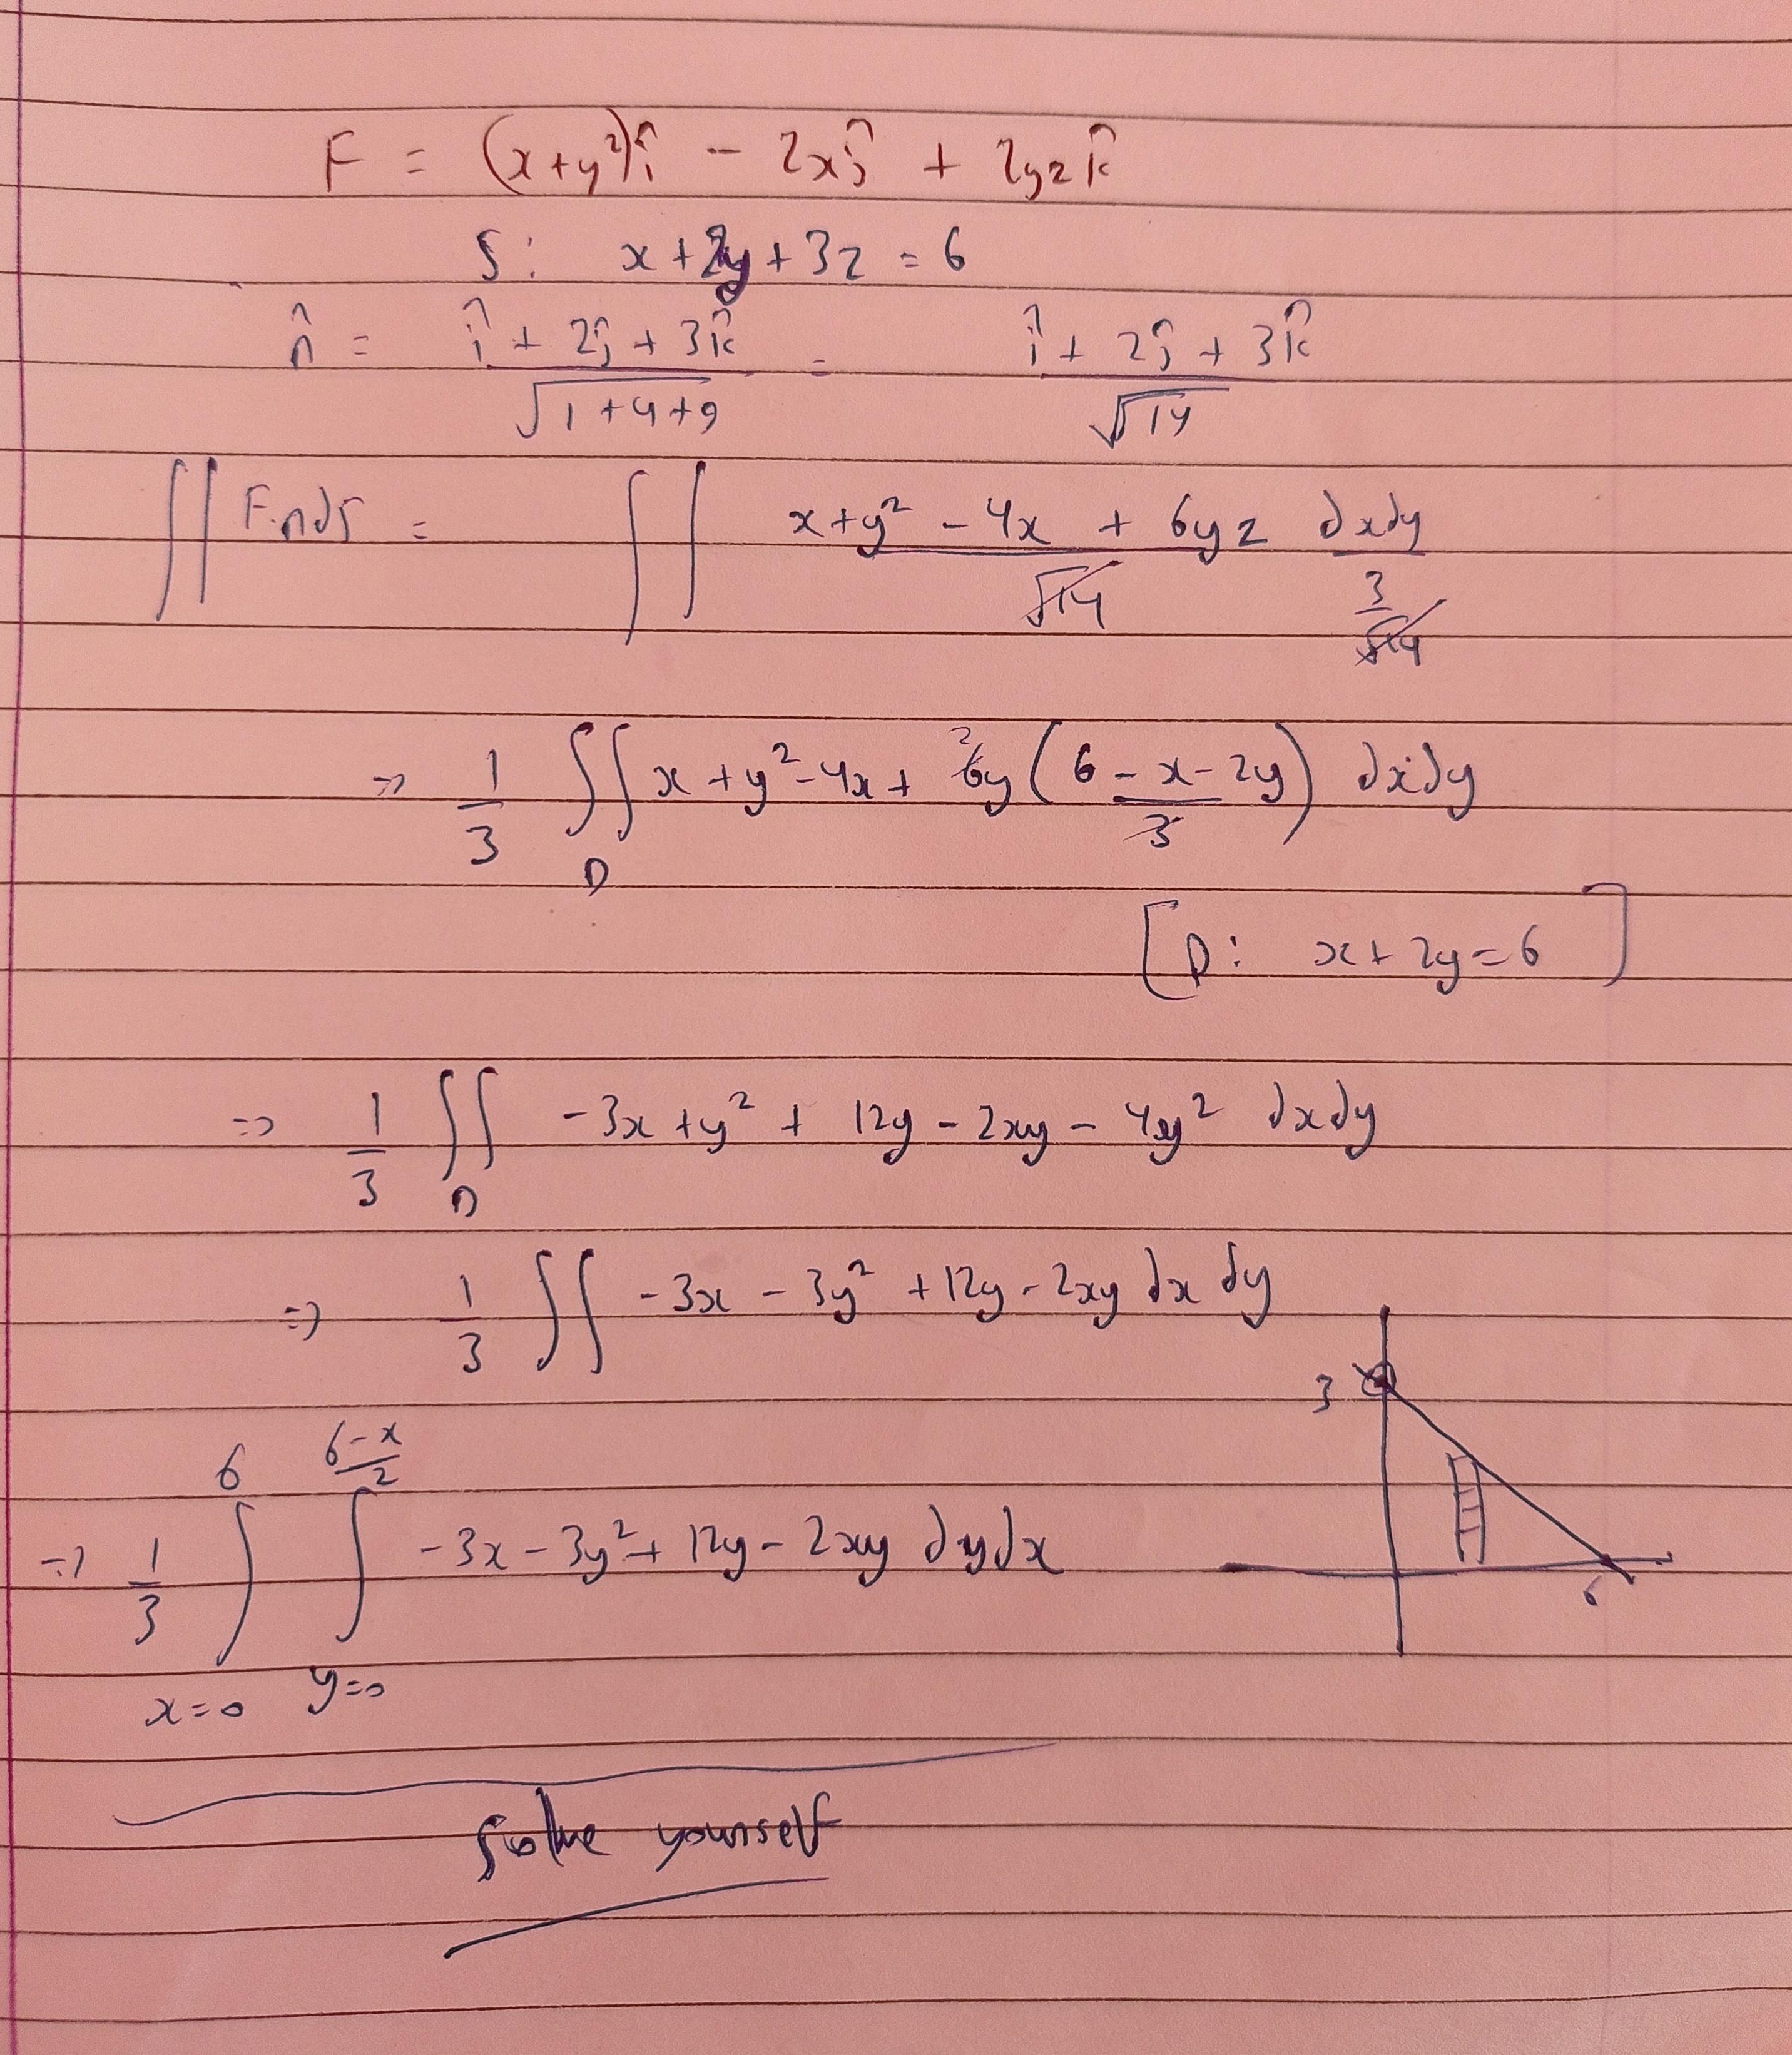 F = (x+y²)î - 2xĵ + 2yzk̂
S: x + 2y + 3z = 6
n̂ = (î + 2ĵ + 3k̂)/√(1+4+9) = (î + 2ĵ + 3k̂)/√14
∬ F.n dS = ∬ (x+y² - 4x + 6yz)/√14 dxdy/(3/√14)
=> 1/3 ∬_D x + y² - 4x + 6y 2 ((6 - x - 2y)/3) dxdy
[D: x + 2y = 6]
=> 1/3 ∬_D -3x + y² + 12y - 2xy - 4y² dxdy
=> 1/3 ∬ -3x - 3y² + 12y - 2xy dx dy
3
=> 1/3 ∫_{x=0}^{6} ∫_{y=0}^{(6-x)/2} -3x - 3y² + 12y - 2xy dydx
6
Solve yourself